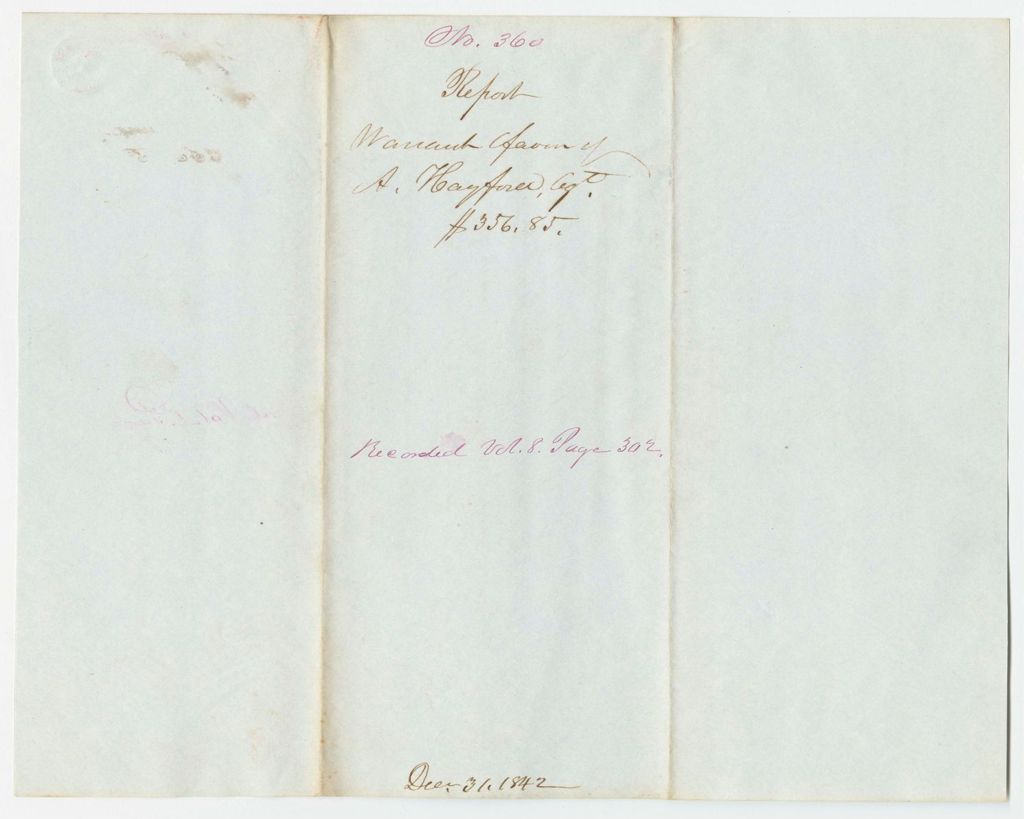 No. 360
Report
Warrant favor of
A. Hayford, Agt.
$356.85.
Recorded Vol. 8. Page 302.
Decr 31, 1842